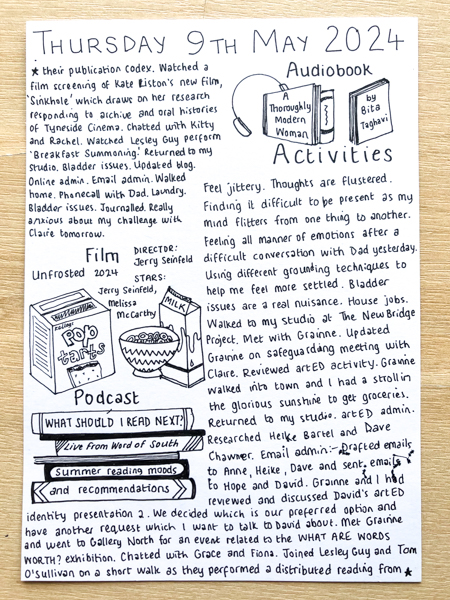 THURSDAY 9TH MAY 2024
★ their publication codex. Watched a
film screening of Kate Liston's new film,
'Sinkhole' which draws on her research
responding to archive and oral histories
of Tyneside Cinema. Chatted with Kitty
and Rachel. Watched Lesley Guy perform
'Breakfast Summoning.' Returned to my
Studio. Bladder issues. Updated blog.
Online admin. Email admin. Walked
home. Phonecall with Dad. Laundry.
Bladder issues. Journalled. Really
anxious about my challenge with
Claire tomorrow.
Film
Unfrosted 2024
DIRECTOR:
Jerry Seinfeld
STARS:
Jerry Seinfeld,
Melissa
McCarthy
Pop
tarts
MILK
Podcast
WHAT SHOULD I READ NEXT?
Live from Word of South
Summer reading moods
and recommendations
Audiobook
A
Thoroughly
Modern
Woman
by
Bita
Taghavi
Activities
Feel jittery. Thoughts are flustered.
Finding it difficult to be present as my
mind flitters from one thing to another.
Feeling all manner of emotions after a
difficult conversation with Dad yesterday.
Using different grounding techniques to
help me feel more settled. Bladder
issues are a real nuisance. House jobs.
Walked to my studio at The NewBridge
Project. Met with Grainne. Updated
Grainne on safeguarding meeting with
Claire. Reviewed artED activity. Grainne
walked into town and I had a stroll in
the glorious sunshine to get groceries.
Returned to my studio. artED admin.
Researched Heike Bartel and Dave
Chawner. Email admin:- Drafted emails
to Anne, Heike, Dave and sent emails
to Hope and David. Grainne and I had
reviewed and discussed David's artED
identity presentation 2. We decided which is our preferred option and
have another request which I want to talk to David about. Met Grainne
and went to Gallery North for an event related to the WHAT ARE WORDS
WORTH? exhibition. Chatted with Grace and Fiona. Joined Lesley Guy and Tom
O'Sullivan on a short walk as they performed a distributed reading from ★